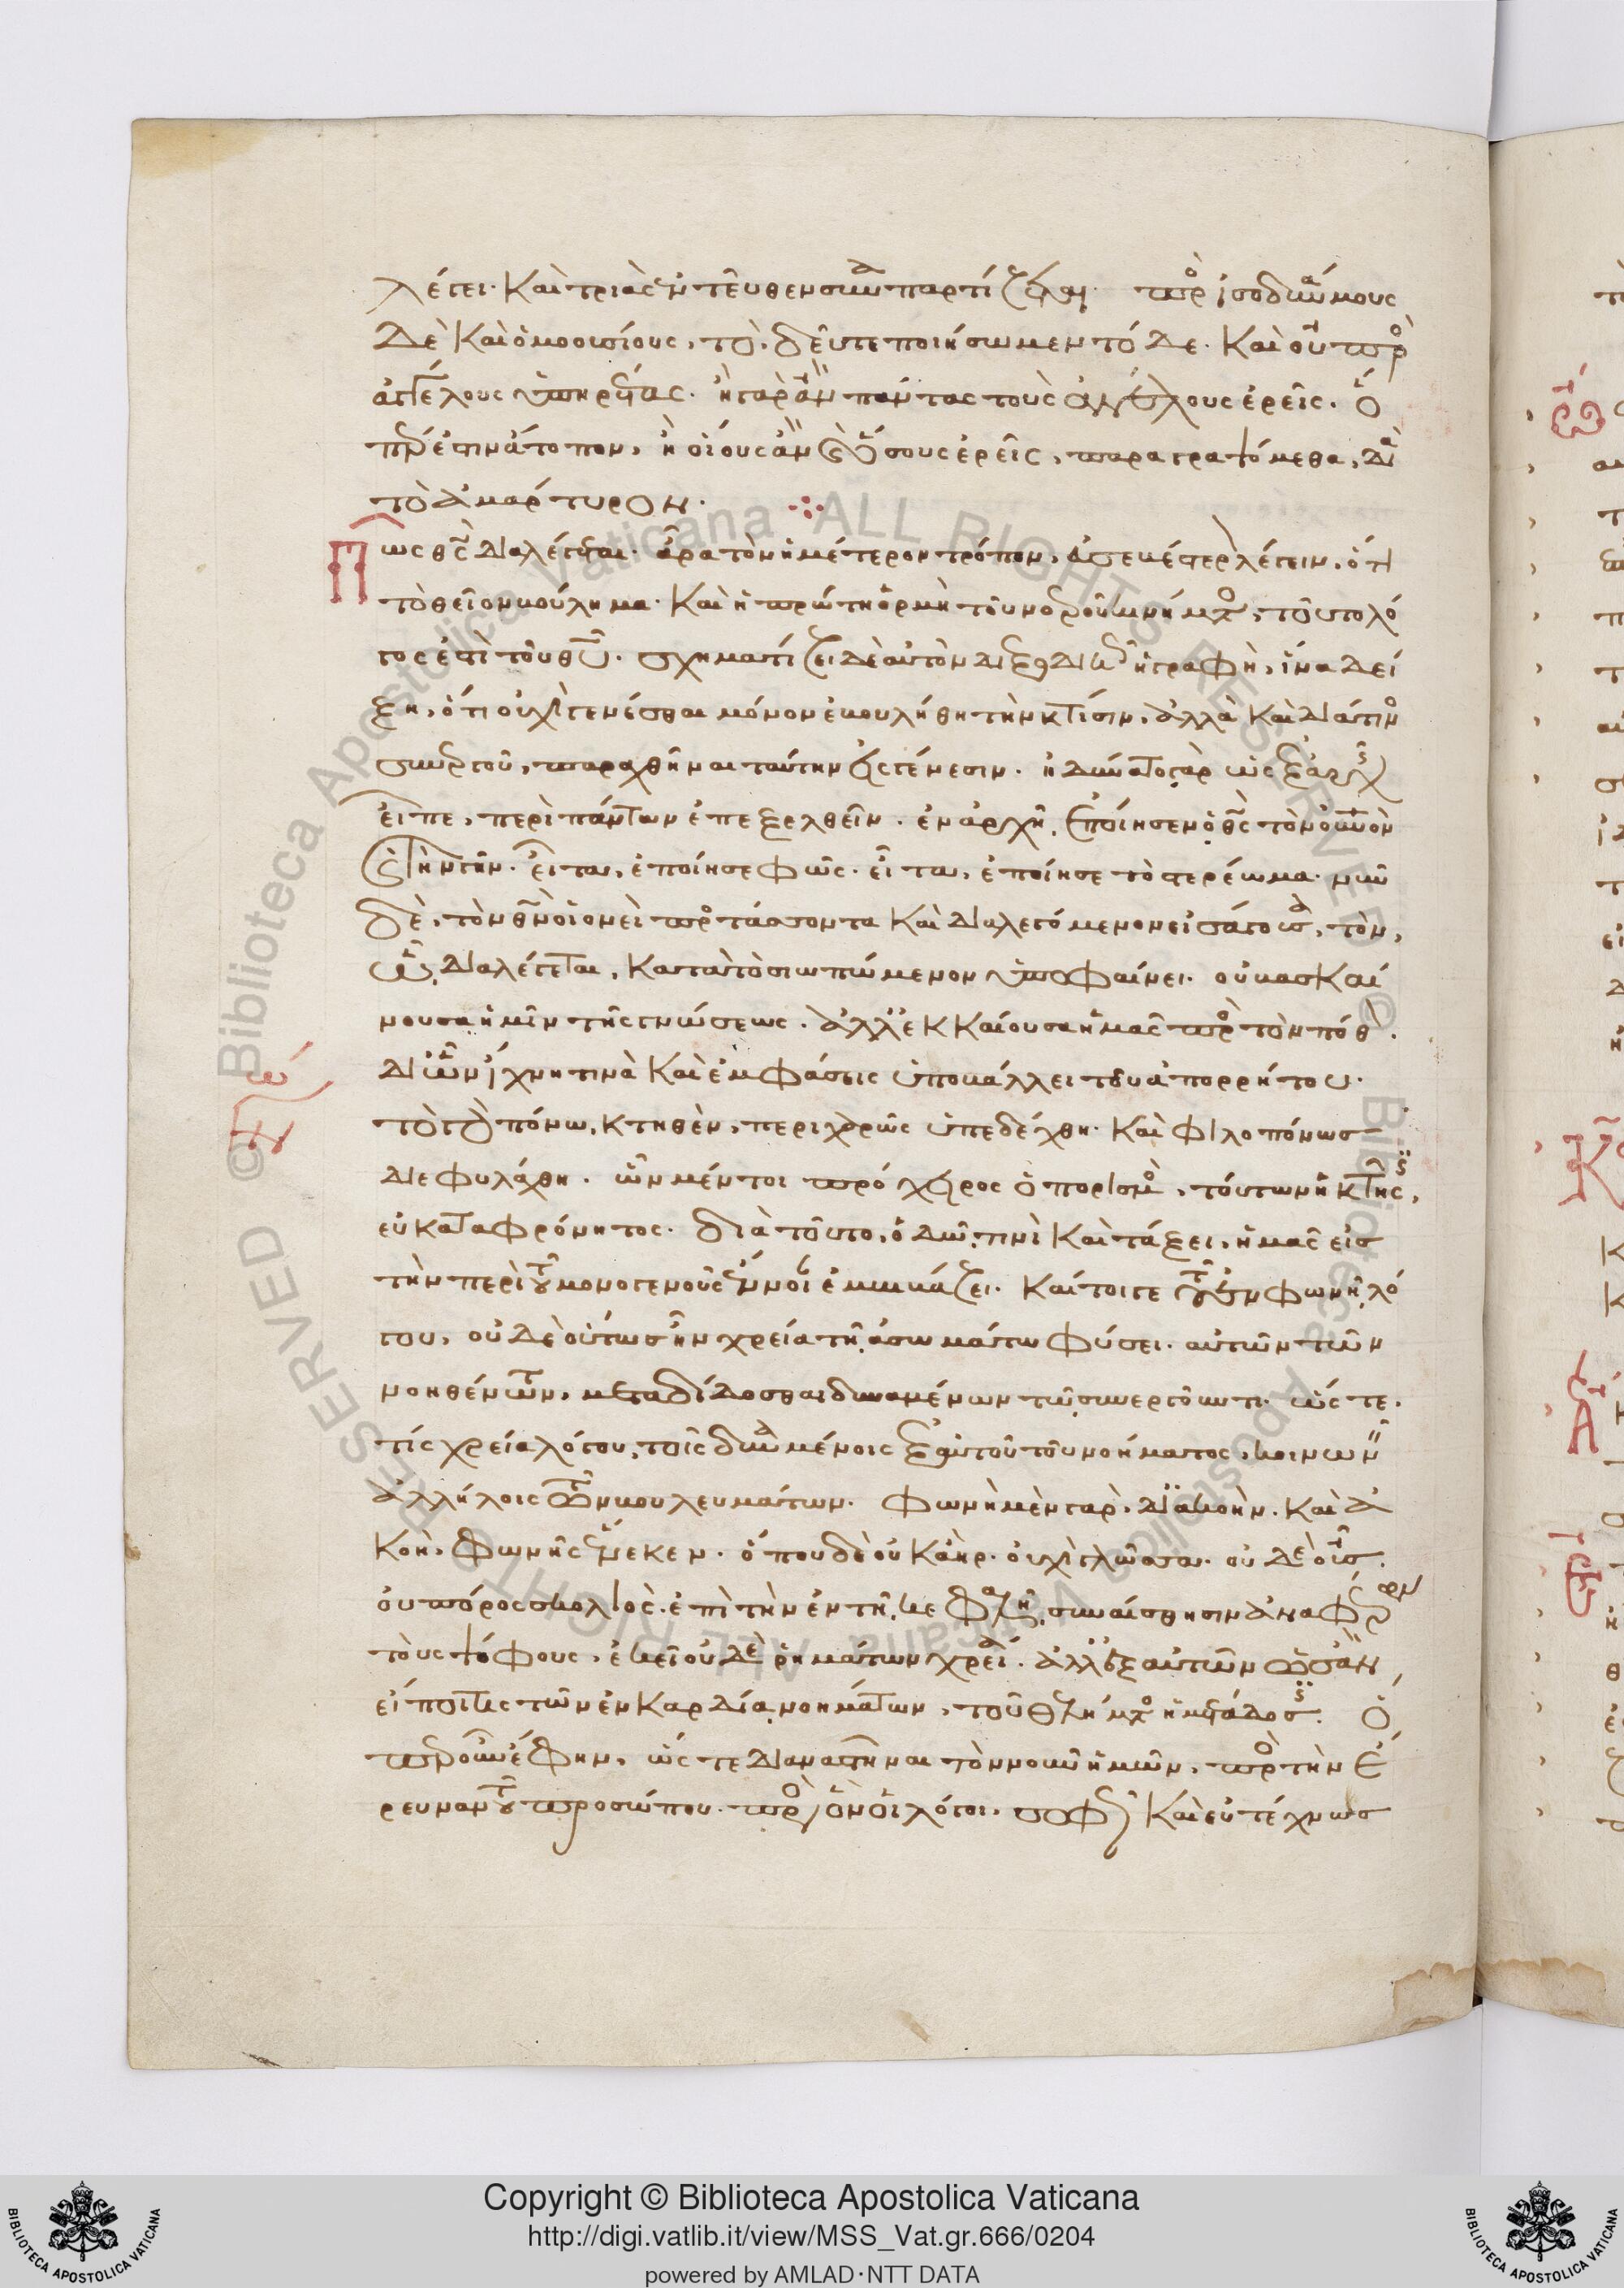 λέγει· καὶ τριὰς ἐντεῦθεν συναπαρτίζεται· πρὸς ἰσοδυνάμους
δὲ καὶ ὁμοουσίους, τὸ, δεῦτε ποιήσωμεν τόδε. καὶ οὐ πρὸς
ἀγγέλους ὑπηρέτας. ἢ γὰρ ἂν πάντας τοὺς ἀγγέλους ἐρεῖς. ὅ
πέρ ἐστιν ἄτοπον, ἢ οἵους ἂν καὶ ὅσους ἐρεῖς, παραγραψόμεθα, διὰ
τὸ ἀμάρτυρον.
Πῶς θεὸς διαλέγεται. ἆρα τὸν ἡμέτερον τρόπον, ἢ εὐσεβέστερον λέγειν, ὅτι
τὸ θεῖον βούλημα. καὶ ἡ πρώτη ὁρμὴ τοῦ νοεροῦ κινήματος, τοῦτο λό
γος ἐστὶ τοῦ θεοῦ. σχηματίζει δὲ αὐτὸν διεξοδικῶς ἡ γραφή, ἵνα δεί
ξῃ, ὅτι οὐχὶ γενέσθαι μόνον ἐβουλήθη τὴν κτίσιν, ἀλλὰ καὶ διά τινος
συνεργοῦ, παραχθῆναι ταύτην εἰς γένεσιν. ἠδύνατο γὰρ ὡς ἐξ ἀρχῆς
εἶπε, περὶ πάντων ἐπεξελθεῖν. ἐν ἀρχῇ ἐποίησεν ὁ θεὸς τὸν οὐρανὸν
καὶ τὴν γῆν. εἶτα, ἐποίησε φῶς. εἶτα, ἐποίησε τὸ στερέωμα. νῦν
δὲ, τὸν θεὸν οἱονεὶ προστάσσοντα καὶ διαλεγόμενον εἰσάγουσα, τὸν,
ᾧ διαλέγεται, κατὰ τὸ σιωπώμενον ὑποφαίνει. οὐ βασκαί
νουσα ἡμῖν τῆς γνώσεως. ἀλλ' ἐκκαίουσα ἡμᾶς πρὸς τὸν πόθον.
δι' ὧν ἴχνη τινὰ καὶ ἐμφάσεις ὑποβάλλει τοῦ ἀπορρήτου.
τὸ γὰρ πόνω, κτηθὲν, περιχαρῶς ὑπεδέχθη. καὶ φιλοπόνως
διεφυλάχθη. ὧν μέντοι πρόχειρος ὁ πορισμὸς, τούτων ἡ κτῆσις,
εὐκαταφρόνητος. διὰ τοῦτο, ὁδῷ τινὶ καὶ τάξει, ἡμᾶς εἰς
τὴν περὶ τοῦ μονογενοῦς ἔννοιαν ἐμβιβάζει. καίτοιγε τοῦ ἐν φωνῇ λό
γου, οὐδὲ οὕτως ἦν χρεία τῇ ἀσωμάτω φύσει. αὐτῶν τῶν
νοηθέντων, μεταδίδοσθαι δυναμένων τῷ συνεργοῦντι. ὥστε
τίς χρεία λόγου, τοῖς δυναμένοις ἐξ αὐτοῦ τοῦ νοήματος, κοινωνεῖν
ἀλλήλοις τῶν βουλευμάτων. φωνὴ μὲν γὰρ, δι' ἀκοήν. καὶ ἀ
κοὴ, φωνῆς ἕνεκεν. ὅπου δὲ οὐκ ἀὴρ. οὐχὶ γλῶσσα. οὐδὲ οὖς.
οὐ πόρος σκολιὸς, ἐπὶ τὴν ἐν τῇ κεφαλῇ συναίσθησιν ἀναφέρων
τοὺς ψόφους, ἐκεῖ οὐδὲ ῥημάτων χρεία. ἀλλ' ἐξ αὐτῶν ὡς ἂν
εἴποι τις τῶν ἐν καρδία νοημάτων, τοῦ θελήματος ἡ μετάδοσις. ὅ
προέφην, ὥστε διαναστῆναι τὸν νοῦν ἡμῶν, πρὸς τὴν ἔ
ρευναν τοῦ προσώπου, πρὸς ὃν οἱ λόγοι. σοφῶς καὶ εὐτέχνως